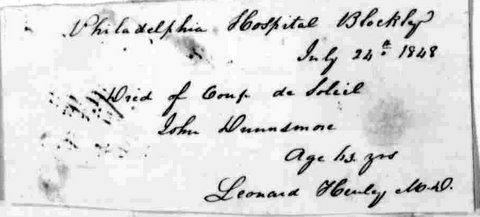 Philadelphia Hospital Blockley
July 24th 1848
Died of Coup de Soleil
John Dunnsmore
Age yrs
Leonard Henley M.D.